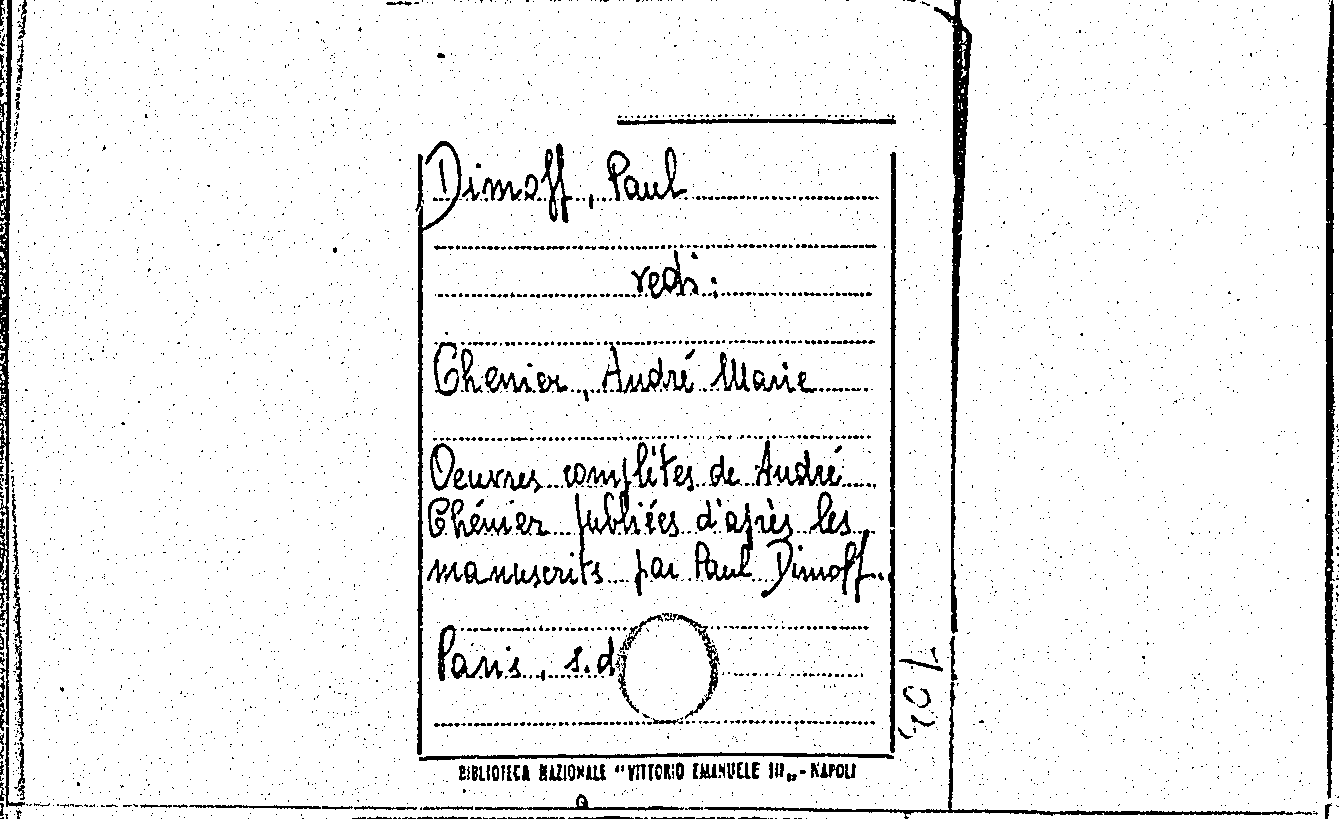 Dimoff, Paul
vedi:
Chenier, André Marie
Oeuvres complètes de André
Chénier publiées d'après les
manuscrits par Paul Dimoff.
Paris, s.d
BIBLIOTECA NAZIONALE "VITTORIO EMANUELE III„ - NAPOLI